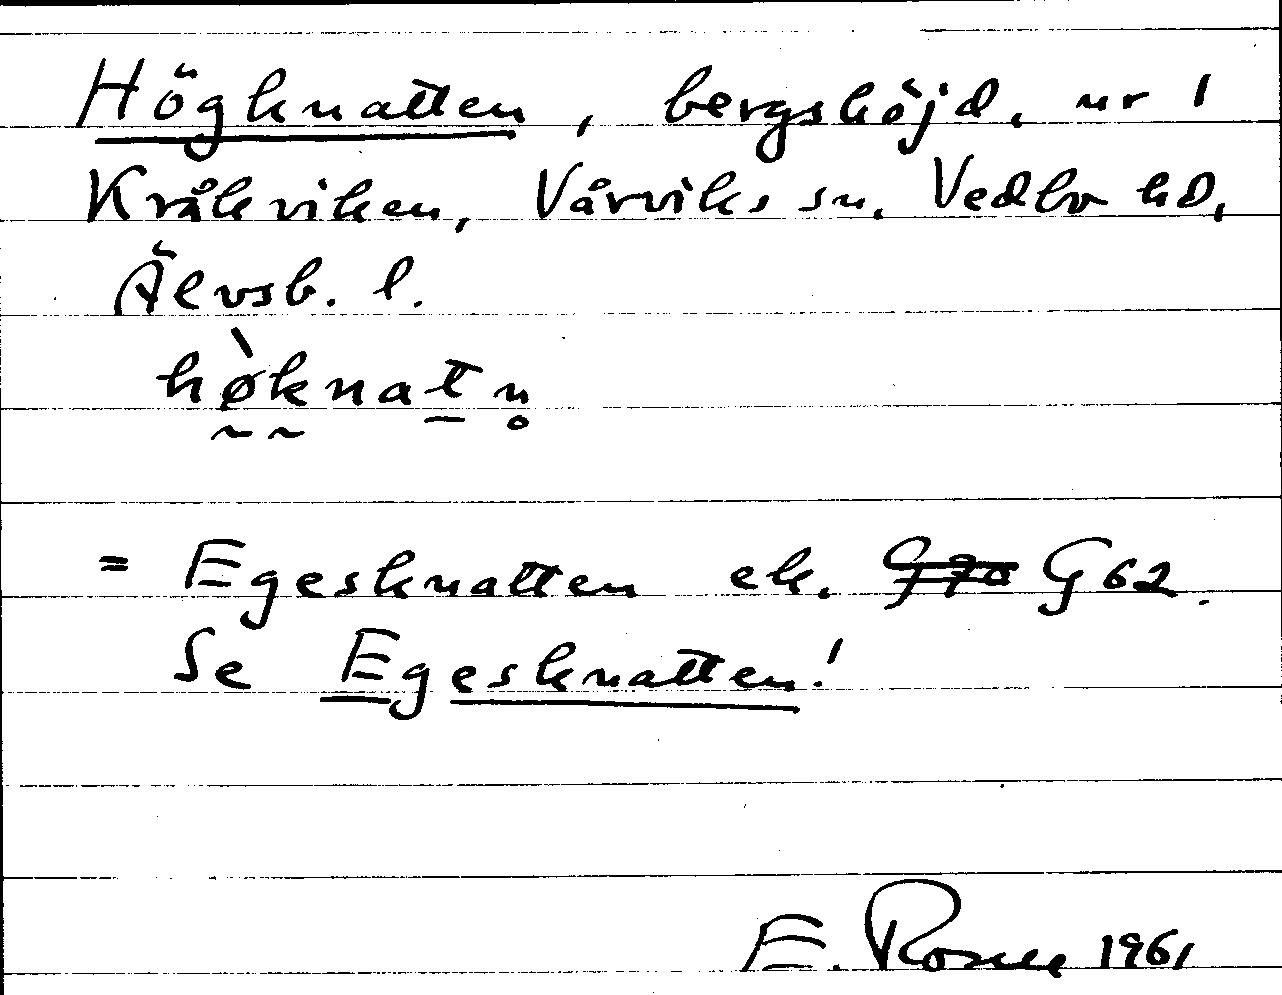 Högknatten, bergshöjd, nr 1
Kråkviken, Vårviks sn, Vedbo hd,
Älvsb. l.
hø̀knatn̥
= Egesknatten ek. G70 G62.
Se Egesknatten!
E. Rosell 1961